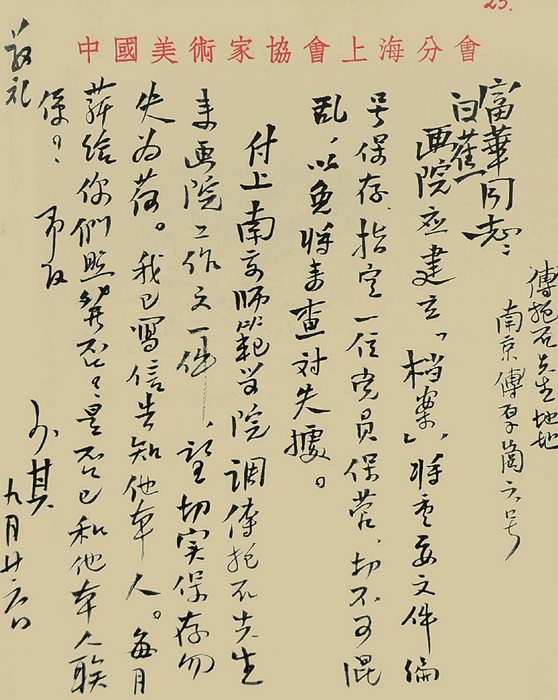 25.
中國美術家協會上海分會
傅抱石先生地址
南京傅厚崗六号
富華
白蕉同志：
画院应建立「档案」，将重要文件编
号保存，指定一位党员保管，切不可混
乱，以免将来查对失據。
付上南京师范学院调傅抱石先生
来画院工作文一件，望切实保存勿
失为荷。我已写信告知他本人。每月
薪给你们照发否？是否已和他本人联
係？即致
敬礼
九月廿六日